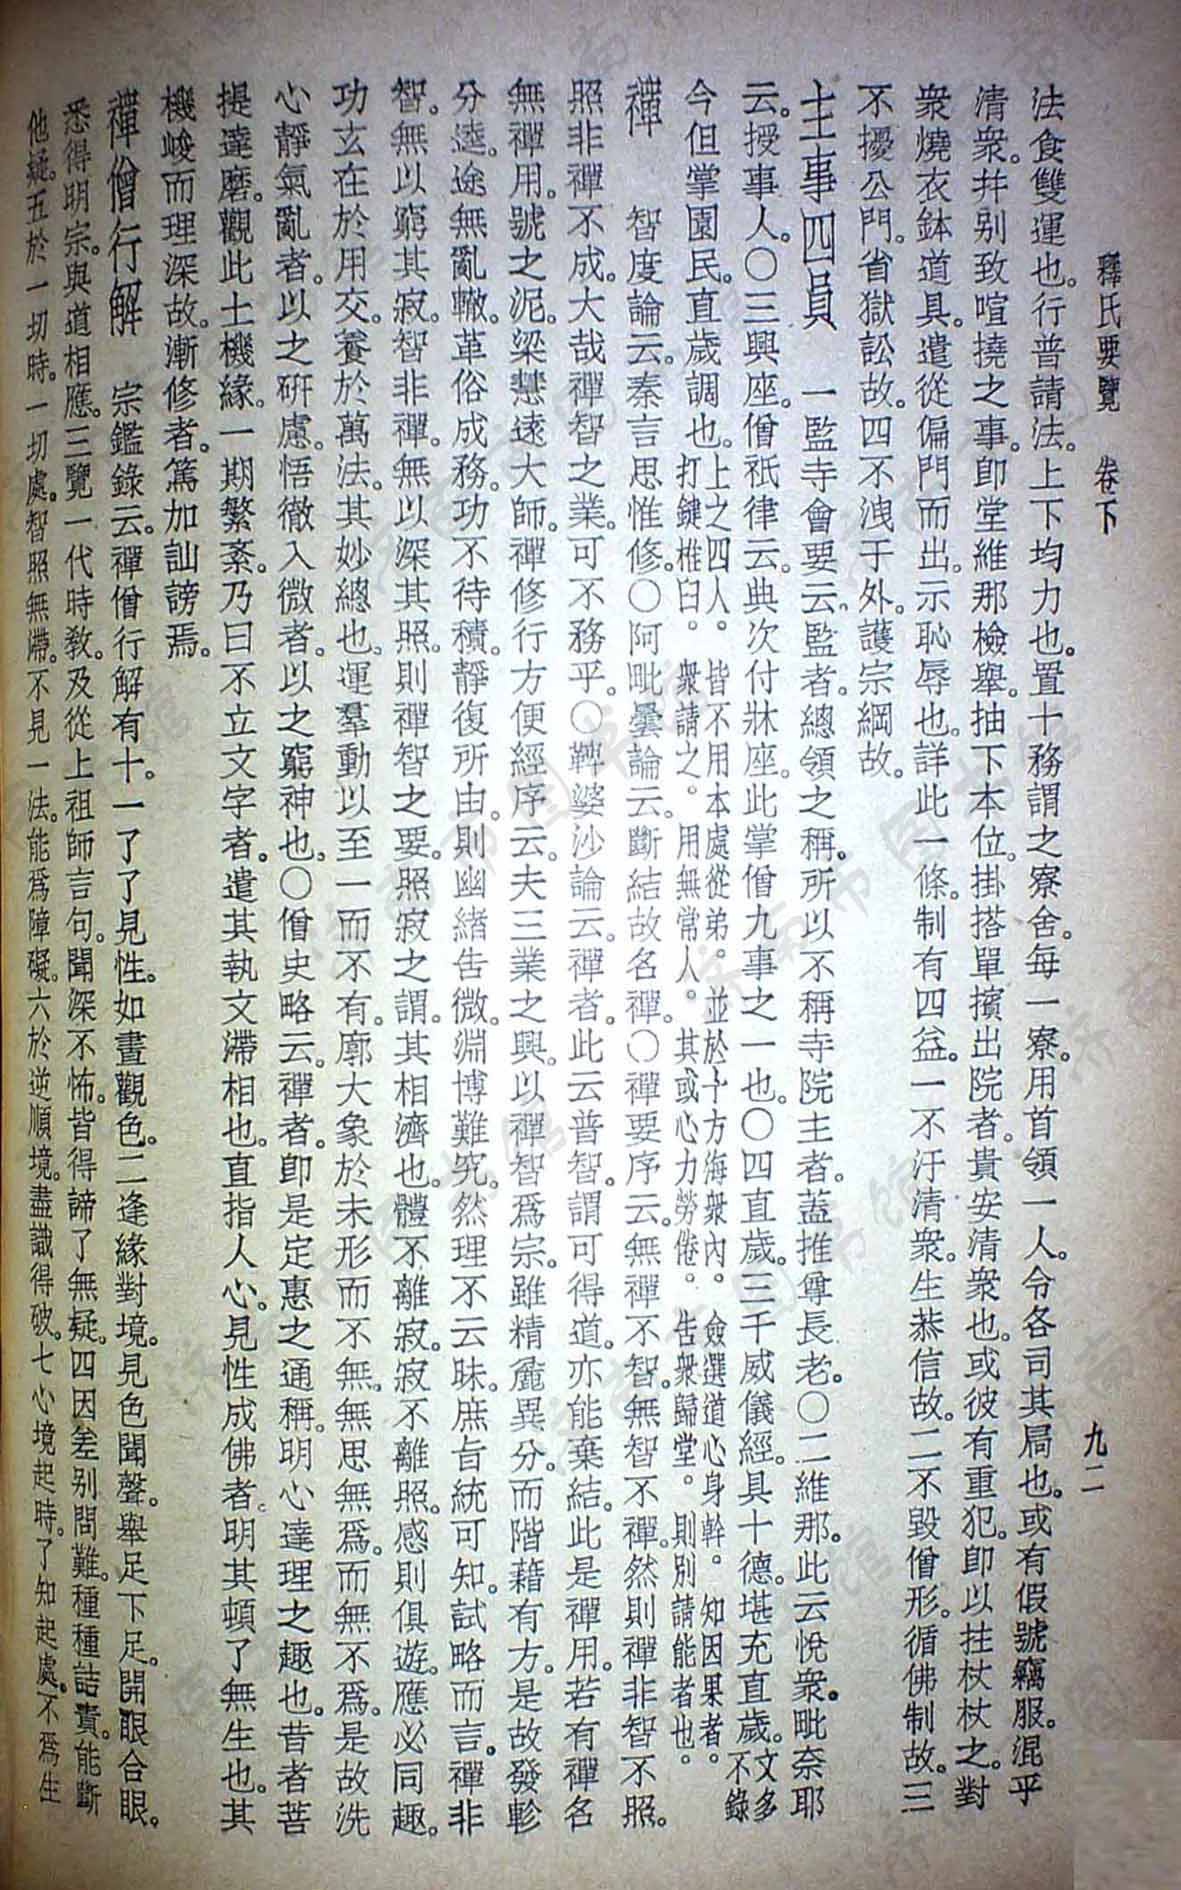 釋氏要覽　卷下　九二
法食雙運也。行普請法。上下均力也。置十務謂之寮舍。每一寮。用首領一人。令各司其局也。或有假號竊服。混乎
清衆。幷別致喧撓之事。卽堂維那檢舉。抽下本位。掛搭單擯出院者。貴安清衆也。或彼有重犯。卽以拄杖杖之。對
衆燒衣鉢道具。遣從偏門而出。示恥辱也。詳此一條。制有四益。一不汙清衆。生恭信故。二不毀僧形。循佛制故。三
不擾公門。省獄訟故。四不洩于外。護宗綱故。
主事四員　一監寺會要云。監者。總領之稱。所以不稱寺院主者。蓋推尊長老。〇二維那。此云悅衆。毗奈耶
云。授事人。〇三興座。僧祇律云。典次付牀座。此掌僧九事之一也。〇四直歲。三千威儀經。具十德。堪充直歲。文多不錄
今但掌園民。直歲調也。上之四人。皆不用本處從弟。並於十方海衆內。僉選道心身幹。知因果者。打鍵椎臼。衆請之。用無常人。其或心力勞倦。告衆歸堂。則別請能者也。
禪　智度論云。秦言思惟修。〇阿毗曇論云。斷結故名禪。〇禪要序云。無禪不智。無智不禪。然則禪非智不照。
照非禪不成。大哉禪智之業。可不務乎。〇鞞婆沙論云。禪者。此云普智。謂可得道。亦能棄結。此是禪用。若有禪名
無禪用。號之泥。梁慧遠大師。禪修行方便經序云。夫三業之興。以禪智爲宗。雖精麄異分。而階藉有方。是故發軫
分逵。途無亂轍。革俗成務。功不待積。靜復所由。則幽緒告微。淵博難究。然理不云昧。庶旨統可知。試略而言。禪非
智。無以窮其寂。智非禪。無以深其照。則禪智之要。照寂之謂。其相濟也。體不離寂。寂不離照。感則俱遊。應必同趣。
功玄在於用交。養於萬法。其妙總也。運羣動以至一而不有。廓大象於未形而不無。無思無爲。而無不爲。是故洗
心靜氣亂者。以之硏慮。悟徹入微者。以之窮神也。〇僧史略云。禪者。卽是定惠之通稱。明心達理之趣也。昔者菩
提達磨。觀此土機緣。一期繁紊。乃曰不立文字者。遣其執文滯相也。直指人心。見性成佛者。明其頓了無生也。其
機峻而理深故。漸修者。篤加訕謗焉。
禪僧行解　宗鑑錄云。禪僧行解有十。一了了見性。如晝觀色。二逢緣對境。見色聞聲。舉足下足。開眼合眼。
悉得明宗。與道相應。三覽一代時敎。及從上祖師言句。聞深不怖。皆得諦了無疑。四因差別問難。種種詰責。能斷
他疑。五於一切時。一切處。智照無滯。不見一法。能爲障礙。六於逆順境。盡識得破。七心境起時。了知起處。不爲生